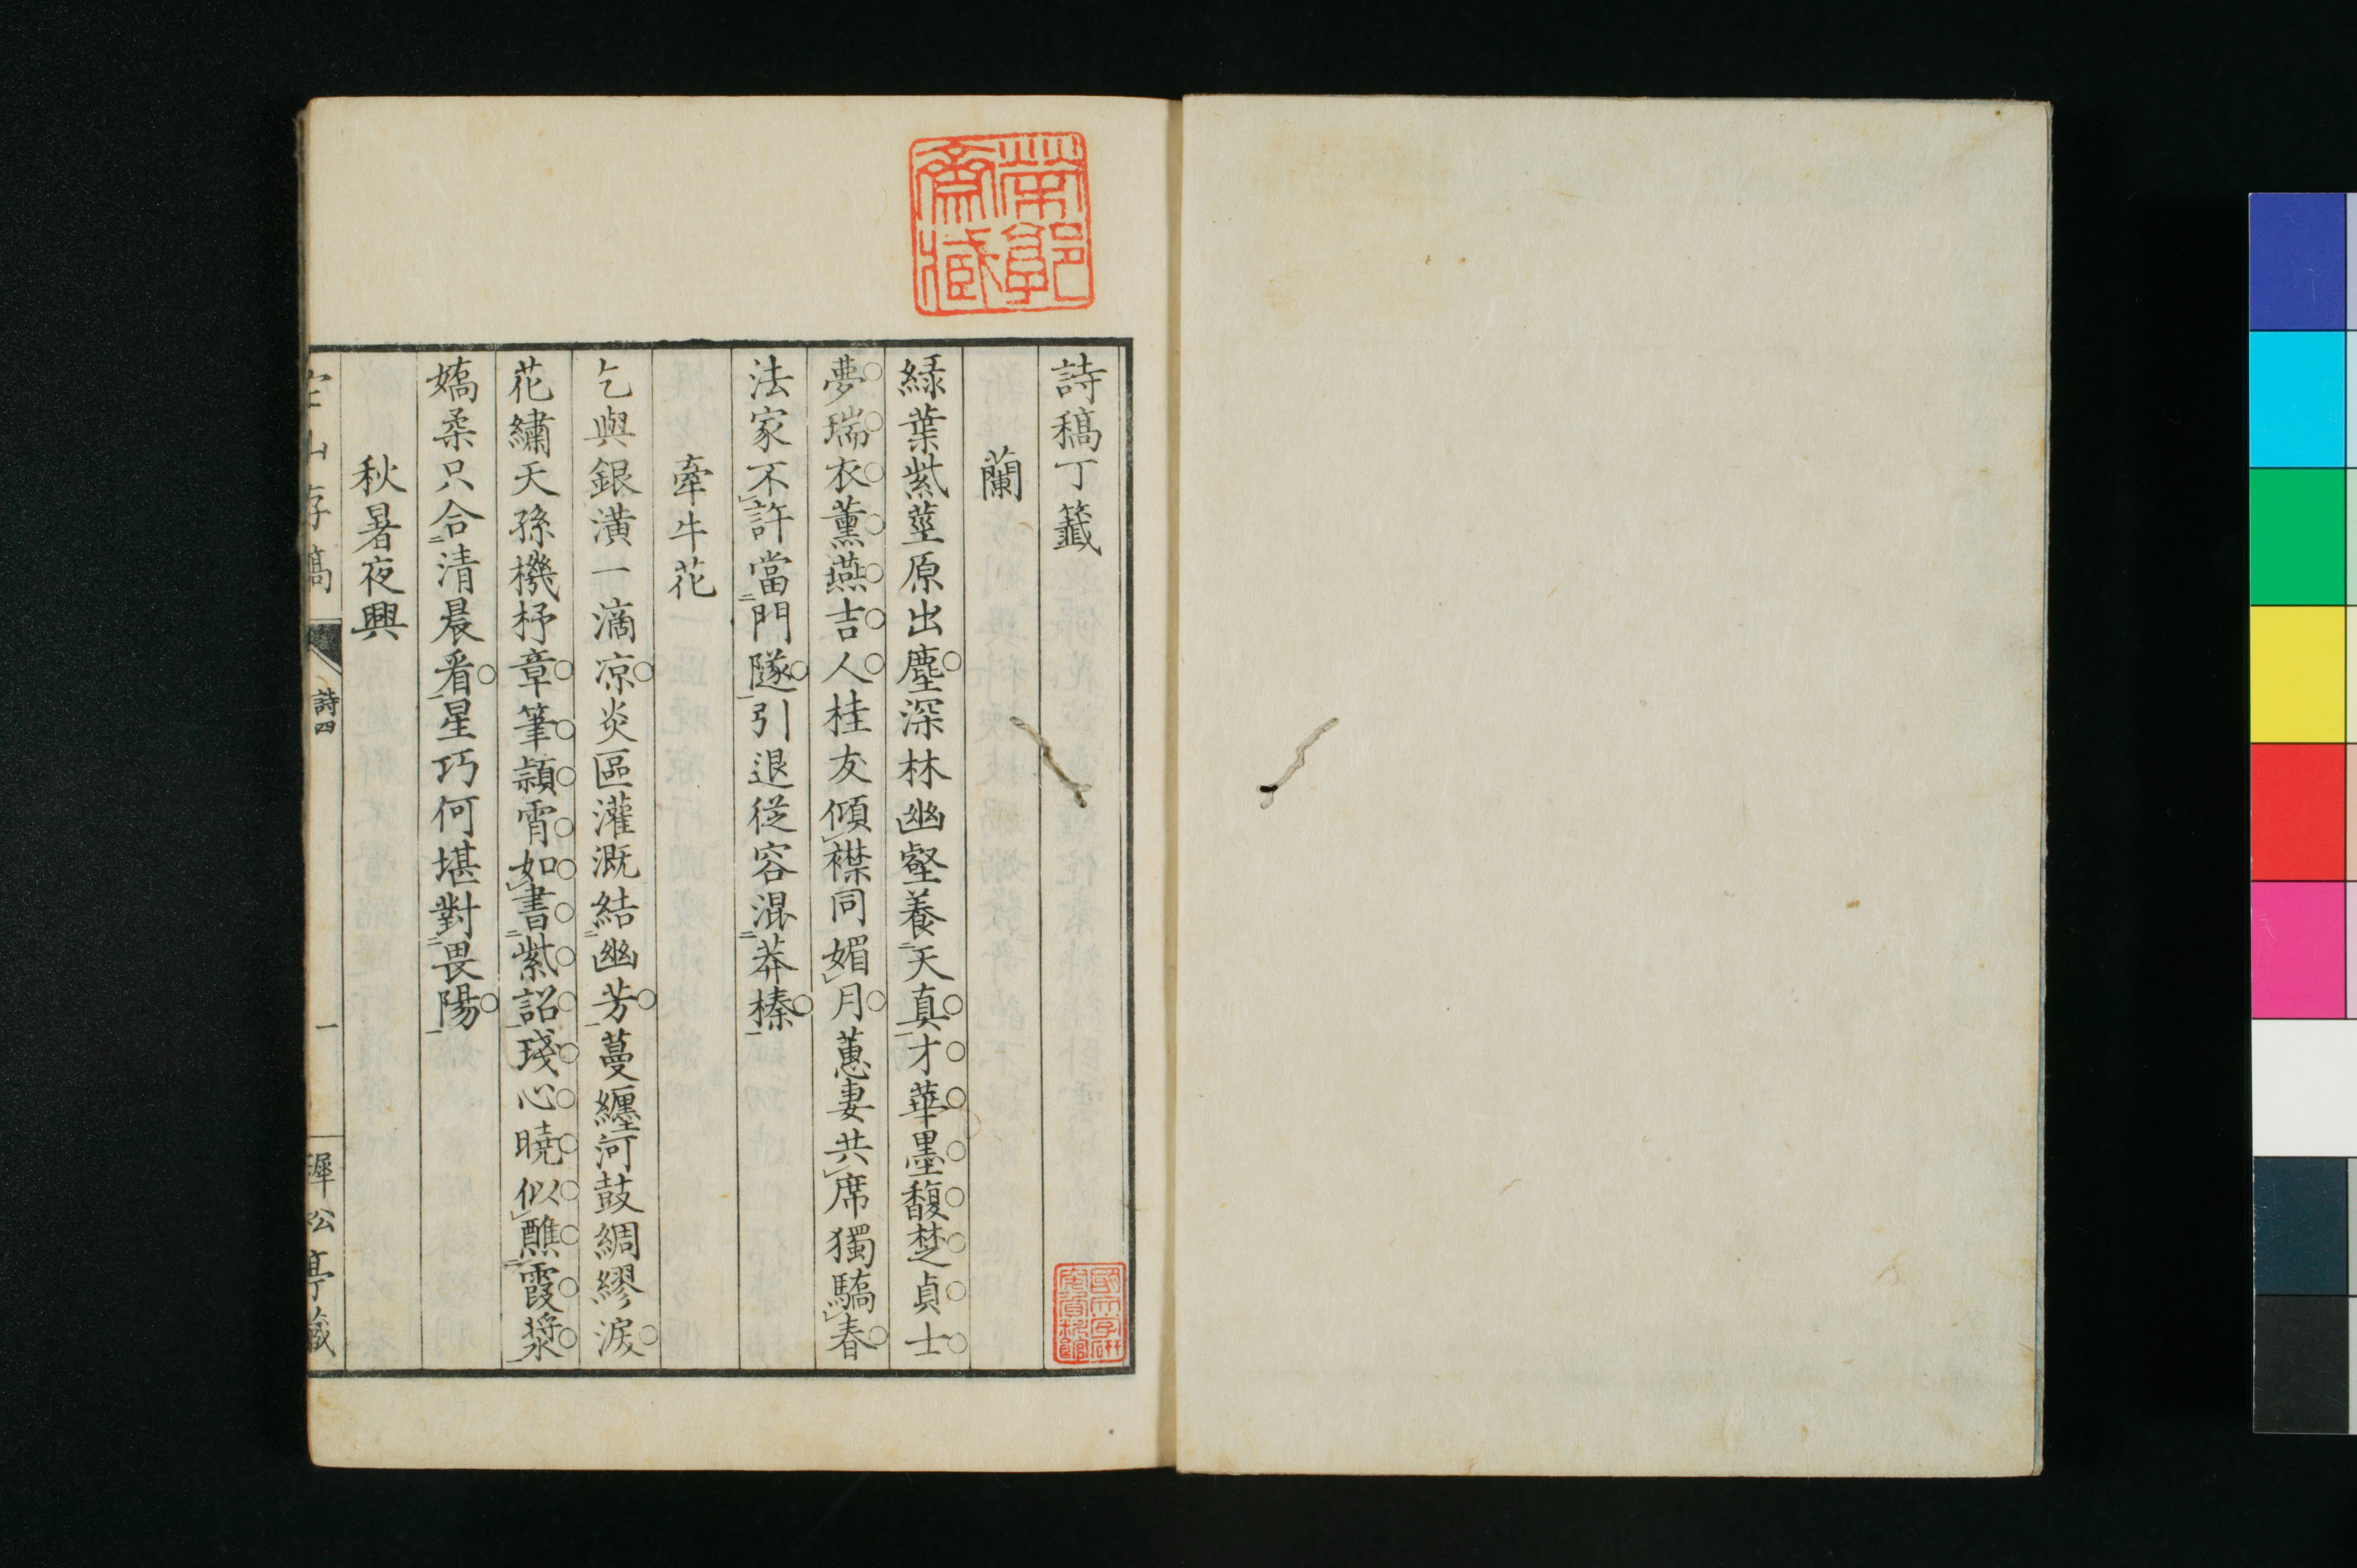 詩稿丁籤
蘭
緑葉紫莖原出塵深林幽壑養天真才華墨馥楚貞士
夢瑞衣薰燕吉人桂友傾襟同媚月蕙妻共席獨驕春
法家不許當門隧引退從容混莽榛
牽牛花
乞與銀潢一滴凉炎區灌溉結幽芳蔓纏河鼓綢繆淚
花繡天孫機杼章筆頴霄如書紫詔琖心曉似醮霞漿
嬌柔只合清晨看星巧何堪對畏陽
秋暑夜興
山存稿
詩四
一
松亭藏